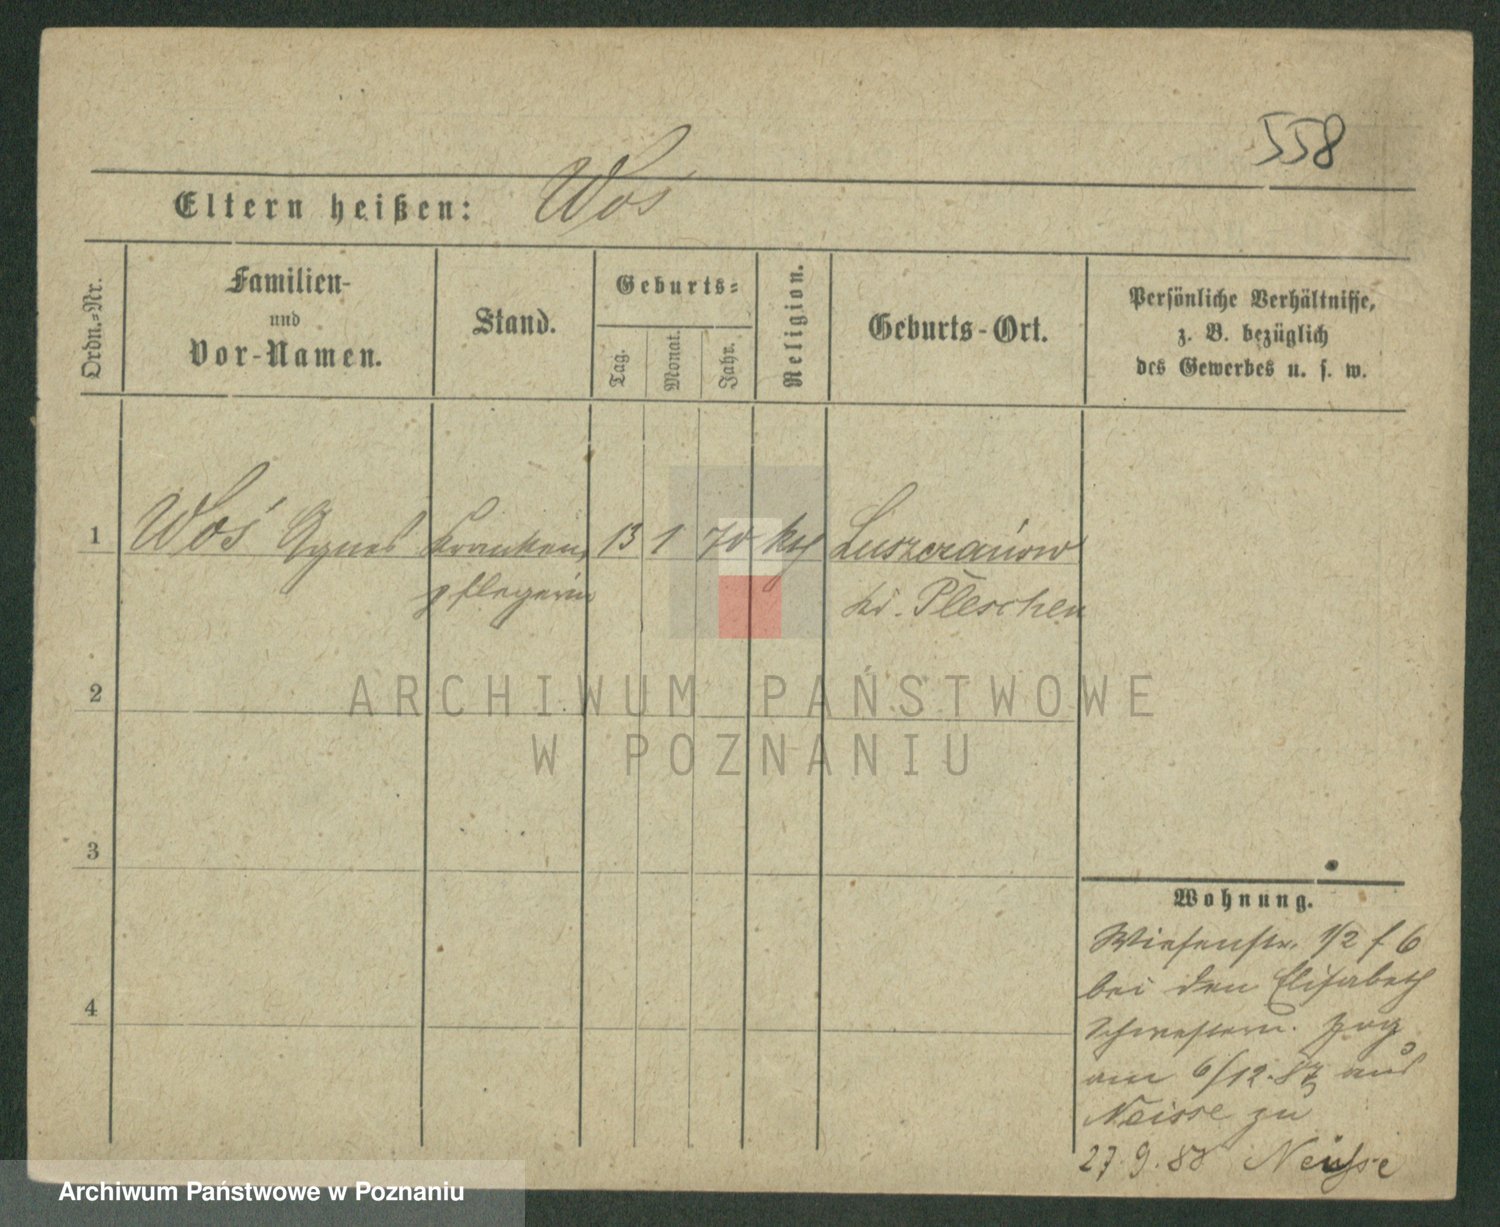 558
Eltern heißen: Woś
Ordn.-Nr.
Familien-
und
Vor-Namen.
Stand.
Geburts-
Tag.
Monat.
Jahr.
Religion.
Geburts-Ort.
Persönliche Verhältnisse,
z. B. bezüglich
des Gewerbes u. s. w.
1 Woś Agnes Kranken 13 1 70 kth Luszczanów
pflegerin Kr. Pleschen
2
3
4
Wohnung.
Wiesenstr. 1/2 f 6
bei den Elisabeth
Schwestern. Zog
am 6/12.87 aus
Neisse zu
27.9.88 Neisse
ARCHIWUM PAŃSTWOWE
W POZNANIU
Archiwum Państwowe w Poznaniu